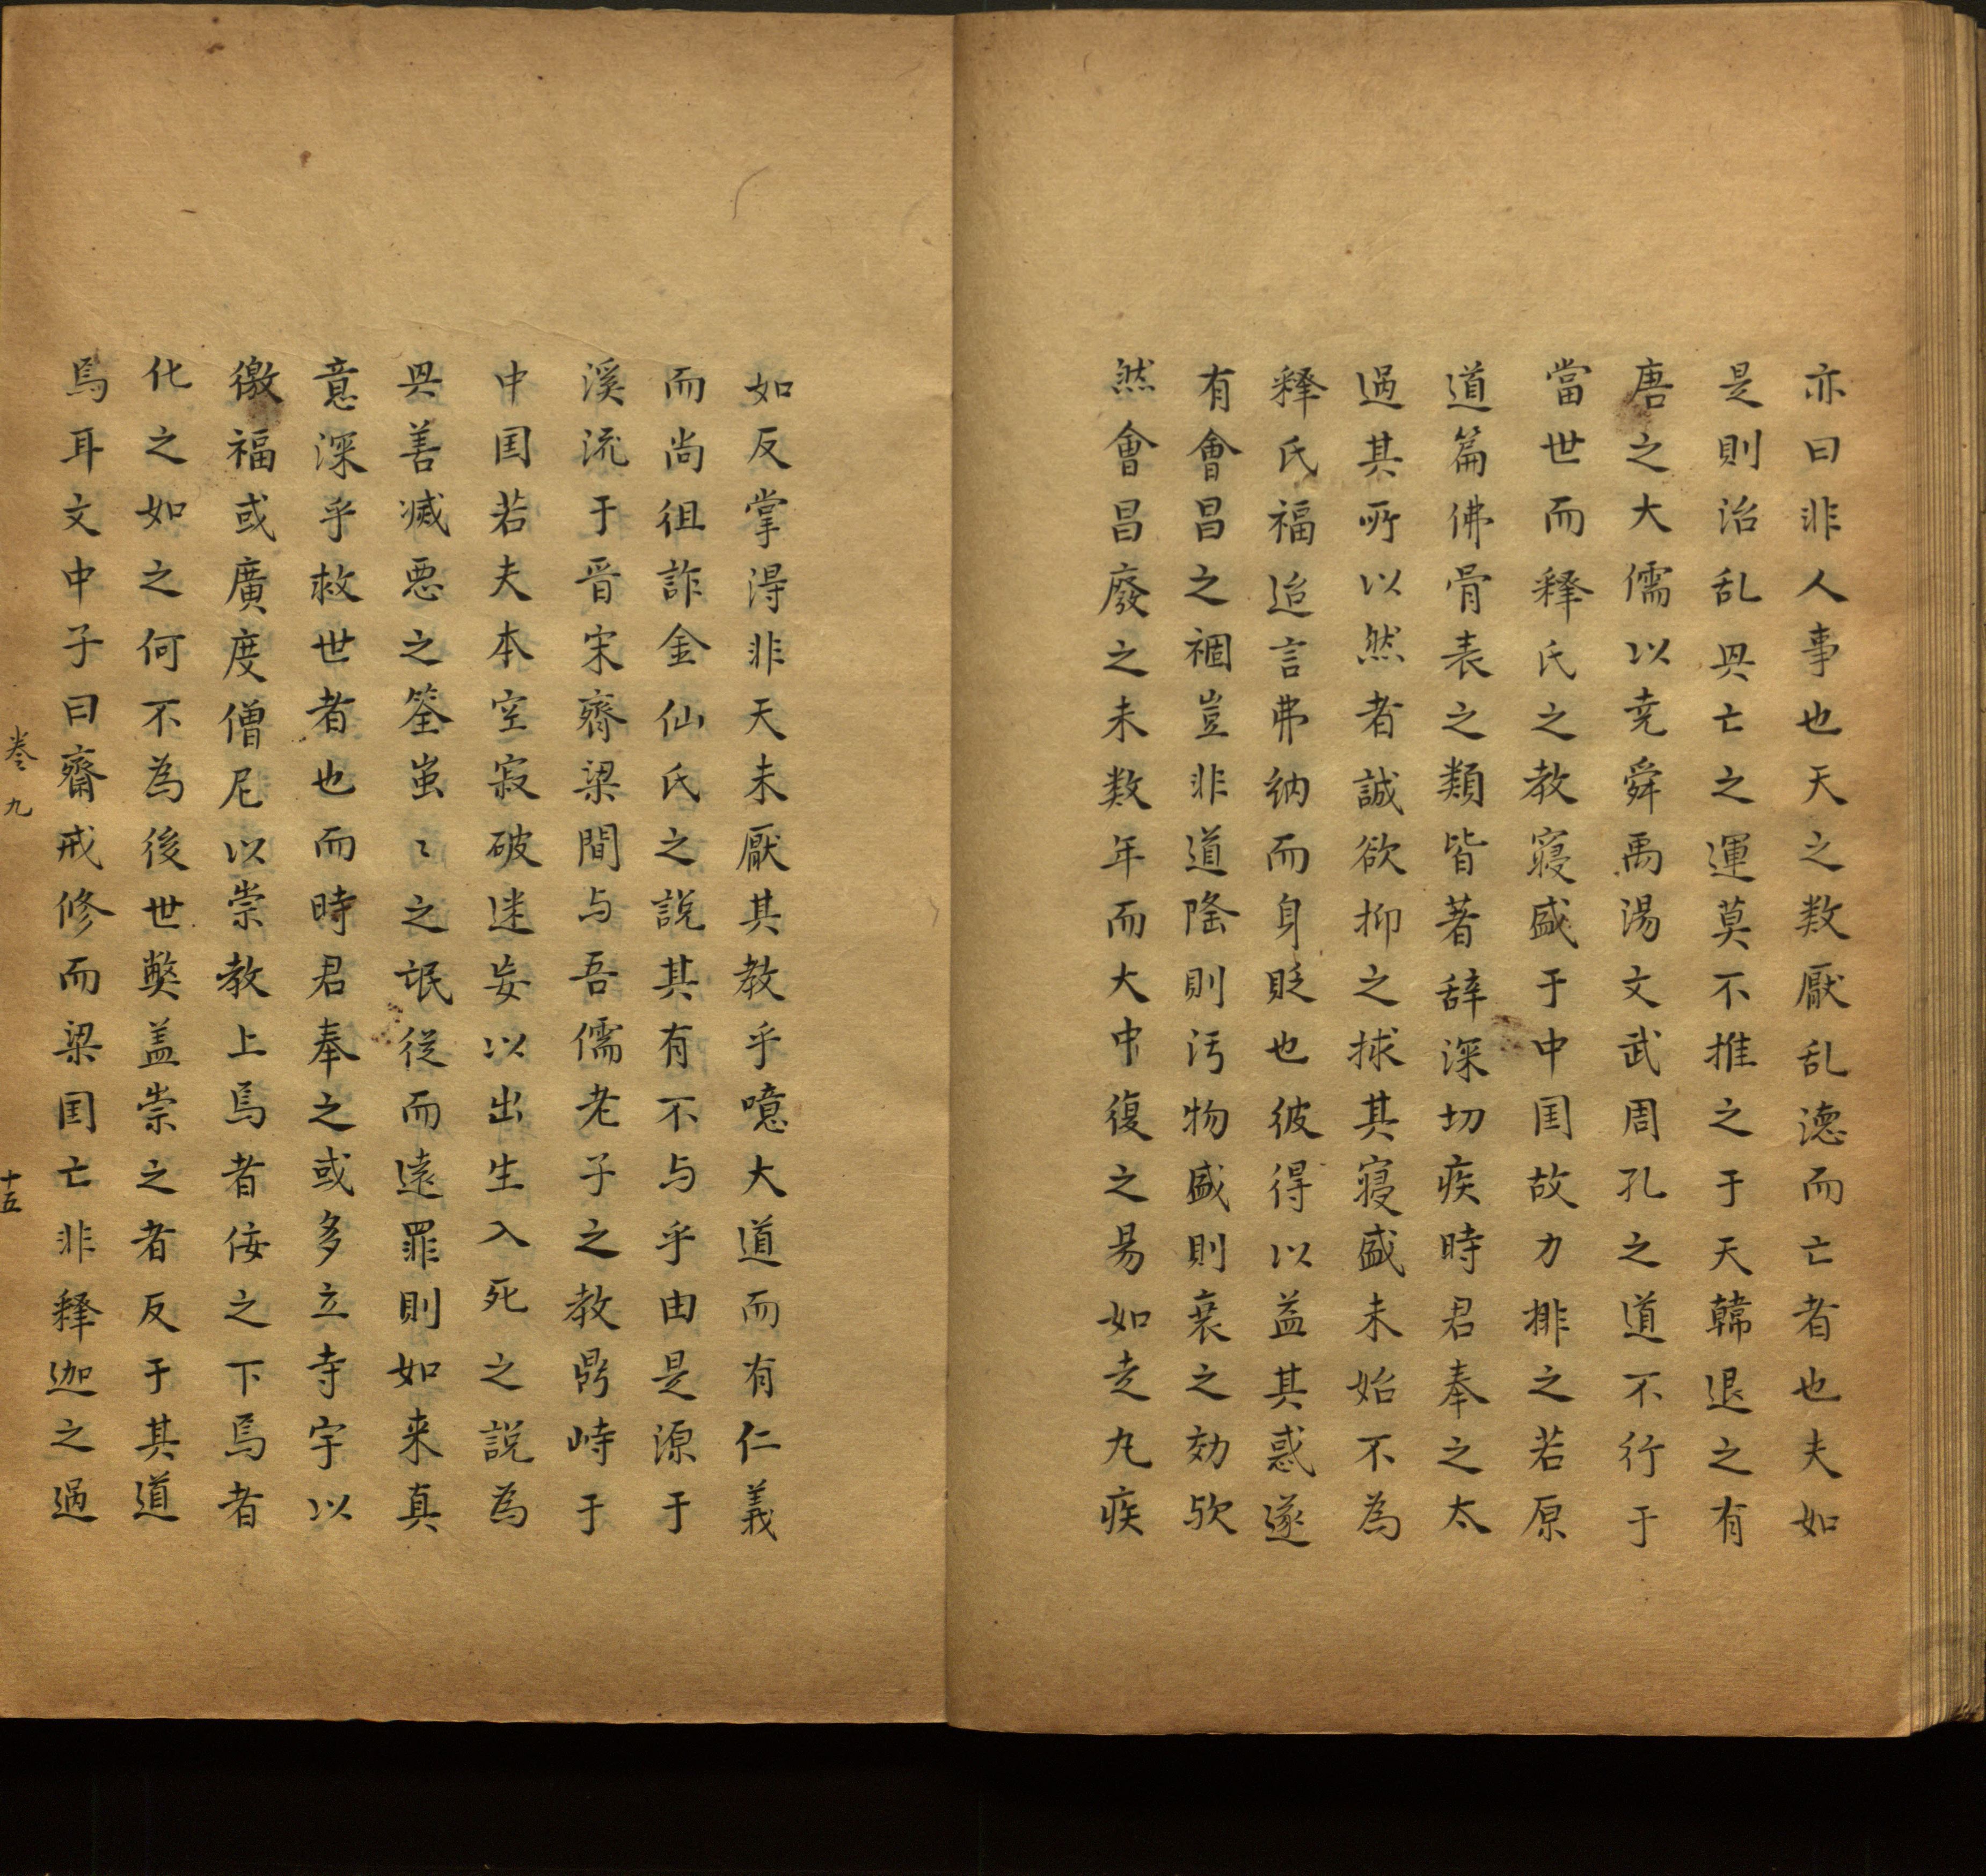 亦曰非人事也天之数厭乱德而亡者也夫如
是則治乱兴亡之運莫不推之于天韓退之有
唐之大儒以尭舜禹湯文武周孔之道不行于
當世而释氏之教寖盛于中国故力排之若原
道篇佛骨表之類皆著辞深切疾時君奉之太
過其所以然者誠欲抑之捄其寖盛未始不為
释氏福迨言弗纳而身貶也彼得以益其惑遂
有會昌之禍豈非道隆則污物盛則衰之効欤
然會昌廢之未数年而大中復之易如走丸疾
如反掌得非天未厭其教乎噫大道而有仁義
而尚徂詐金仙氏之説其有不与乎由是源于
漢流于晋宋齊梁間与吾儒老子之教鼎峙于
中国若夫本空寂破迷妄以出生入死之説為
兴善滅悪之筌蚩〻之氓從而遠罪則如来真
意深乎救世者也而時君奉之或多立寺宇以
徼福或廣度僧尼以崇教上焉者佞之下焉者
化之如之何不為後世獘盖崇之者反于其道
焉耳文中子曰齋戒修而梁国亡非释迦之過
卷九
十五